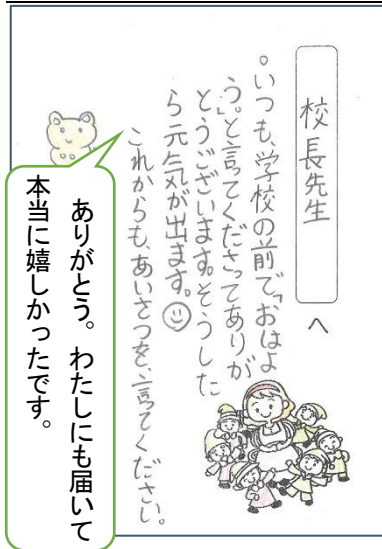 校長先生
へ
。いつも、学校の前で、「おはよ
う。」と言てくださってありが
とうございます。そうした
ら元気が出ます。
これからも、あいさつを、言てください。
ありがとう。わたしにも届いて
本当に嬉しかったです。